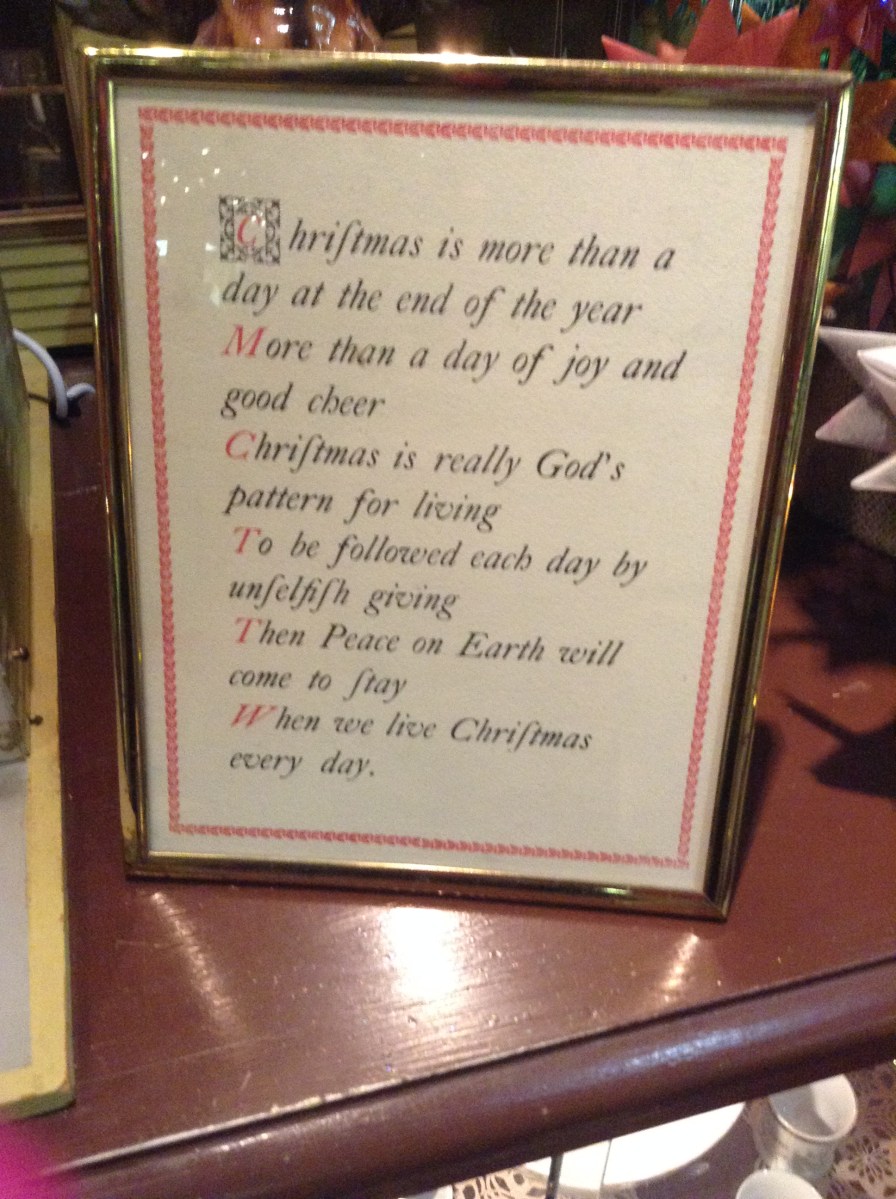 Chriſtmas is more than a
day at the end of the year
More than a day of joy and
good cheer
Chriſtmas is really God's
pattern for living
To be followed each day by
unſelfiſh giving
Then Peace on Earth will
come to ſtay
When we live Chriſtmas
every day.